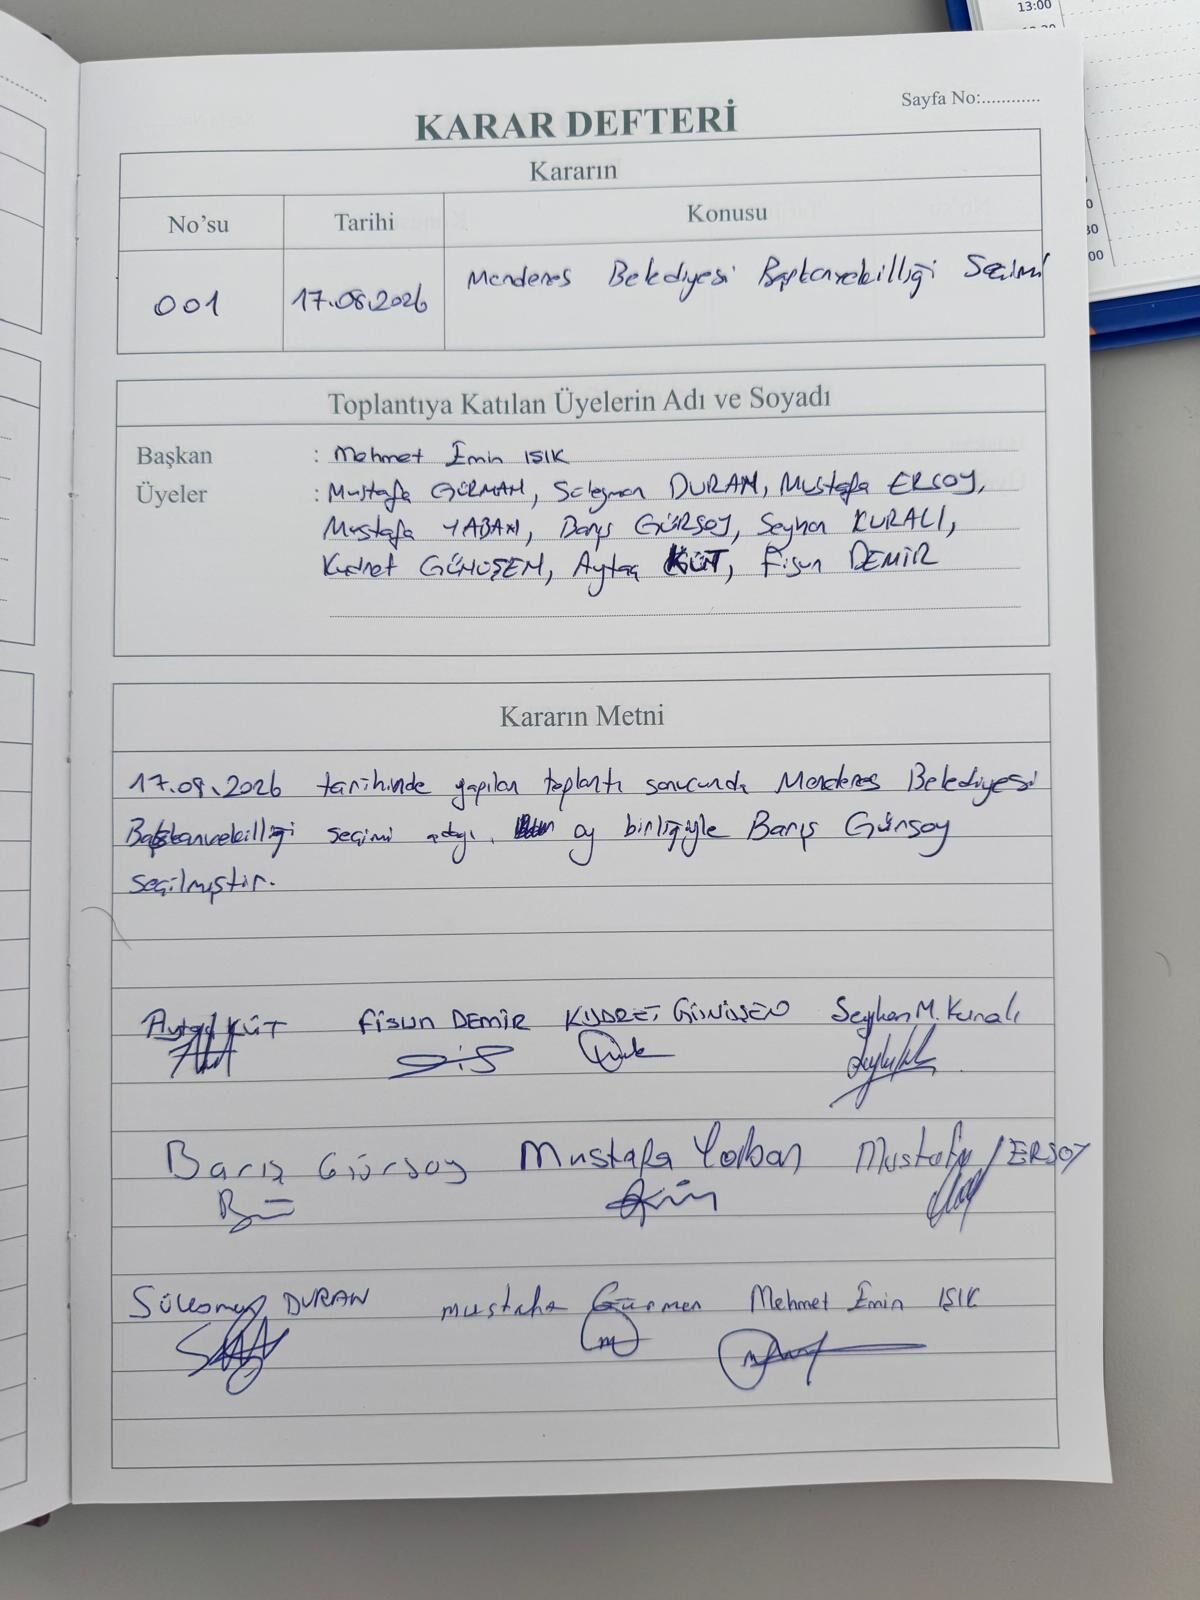 13:00
Sayfa No:............
KARAR DEFTERİ
Kararın
No'su
Tarihi
Konusu
001
17.08.2026
Menderes Belediyesi Başkanvekilliği Seçimi
Toplantıya Katılan Üyelerin Adı ve Soyadı
Başkan : Mehmet Emin IŞIK
Üyeler : Mustafa GÜRMAN, Süleyman DURAN, Mustafa ERSOY,
Mustafa YABAN, Barış GÜRSOY, Seyhan KURALI,
Kudret GÜNÜŞEN, Aytaç KÜT, Fisun DEMİR
Kararın Metni
17.08.2026 tarihinde yapılan toplantı sonucunda Menderes Belediyesi
Başkanvekilliği seçimi adayı, oy birliğiyle Barış Gürsoy
seçilmiştir.
Aytaç KÜT Fisun DEMİR KUDRET GÜNÜŞEN Seyhan M. Kuralı
Barış Gürsoy Mustafa Yaban Mustafa ERSOY
Süleyman DURAN mustafa Gürmen Mehmet Emin IŞIK